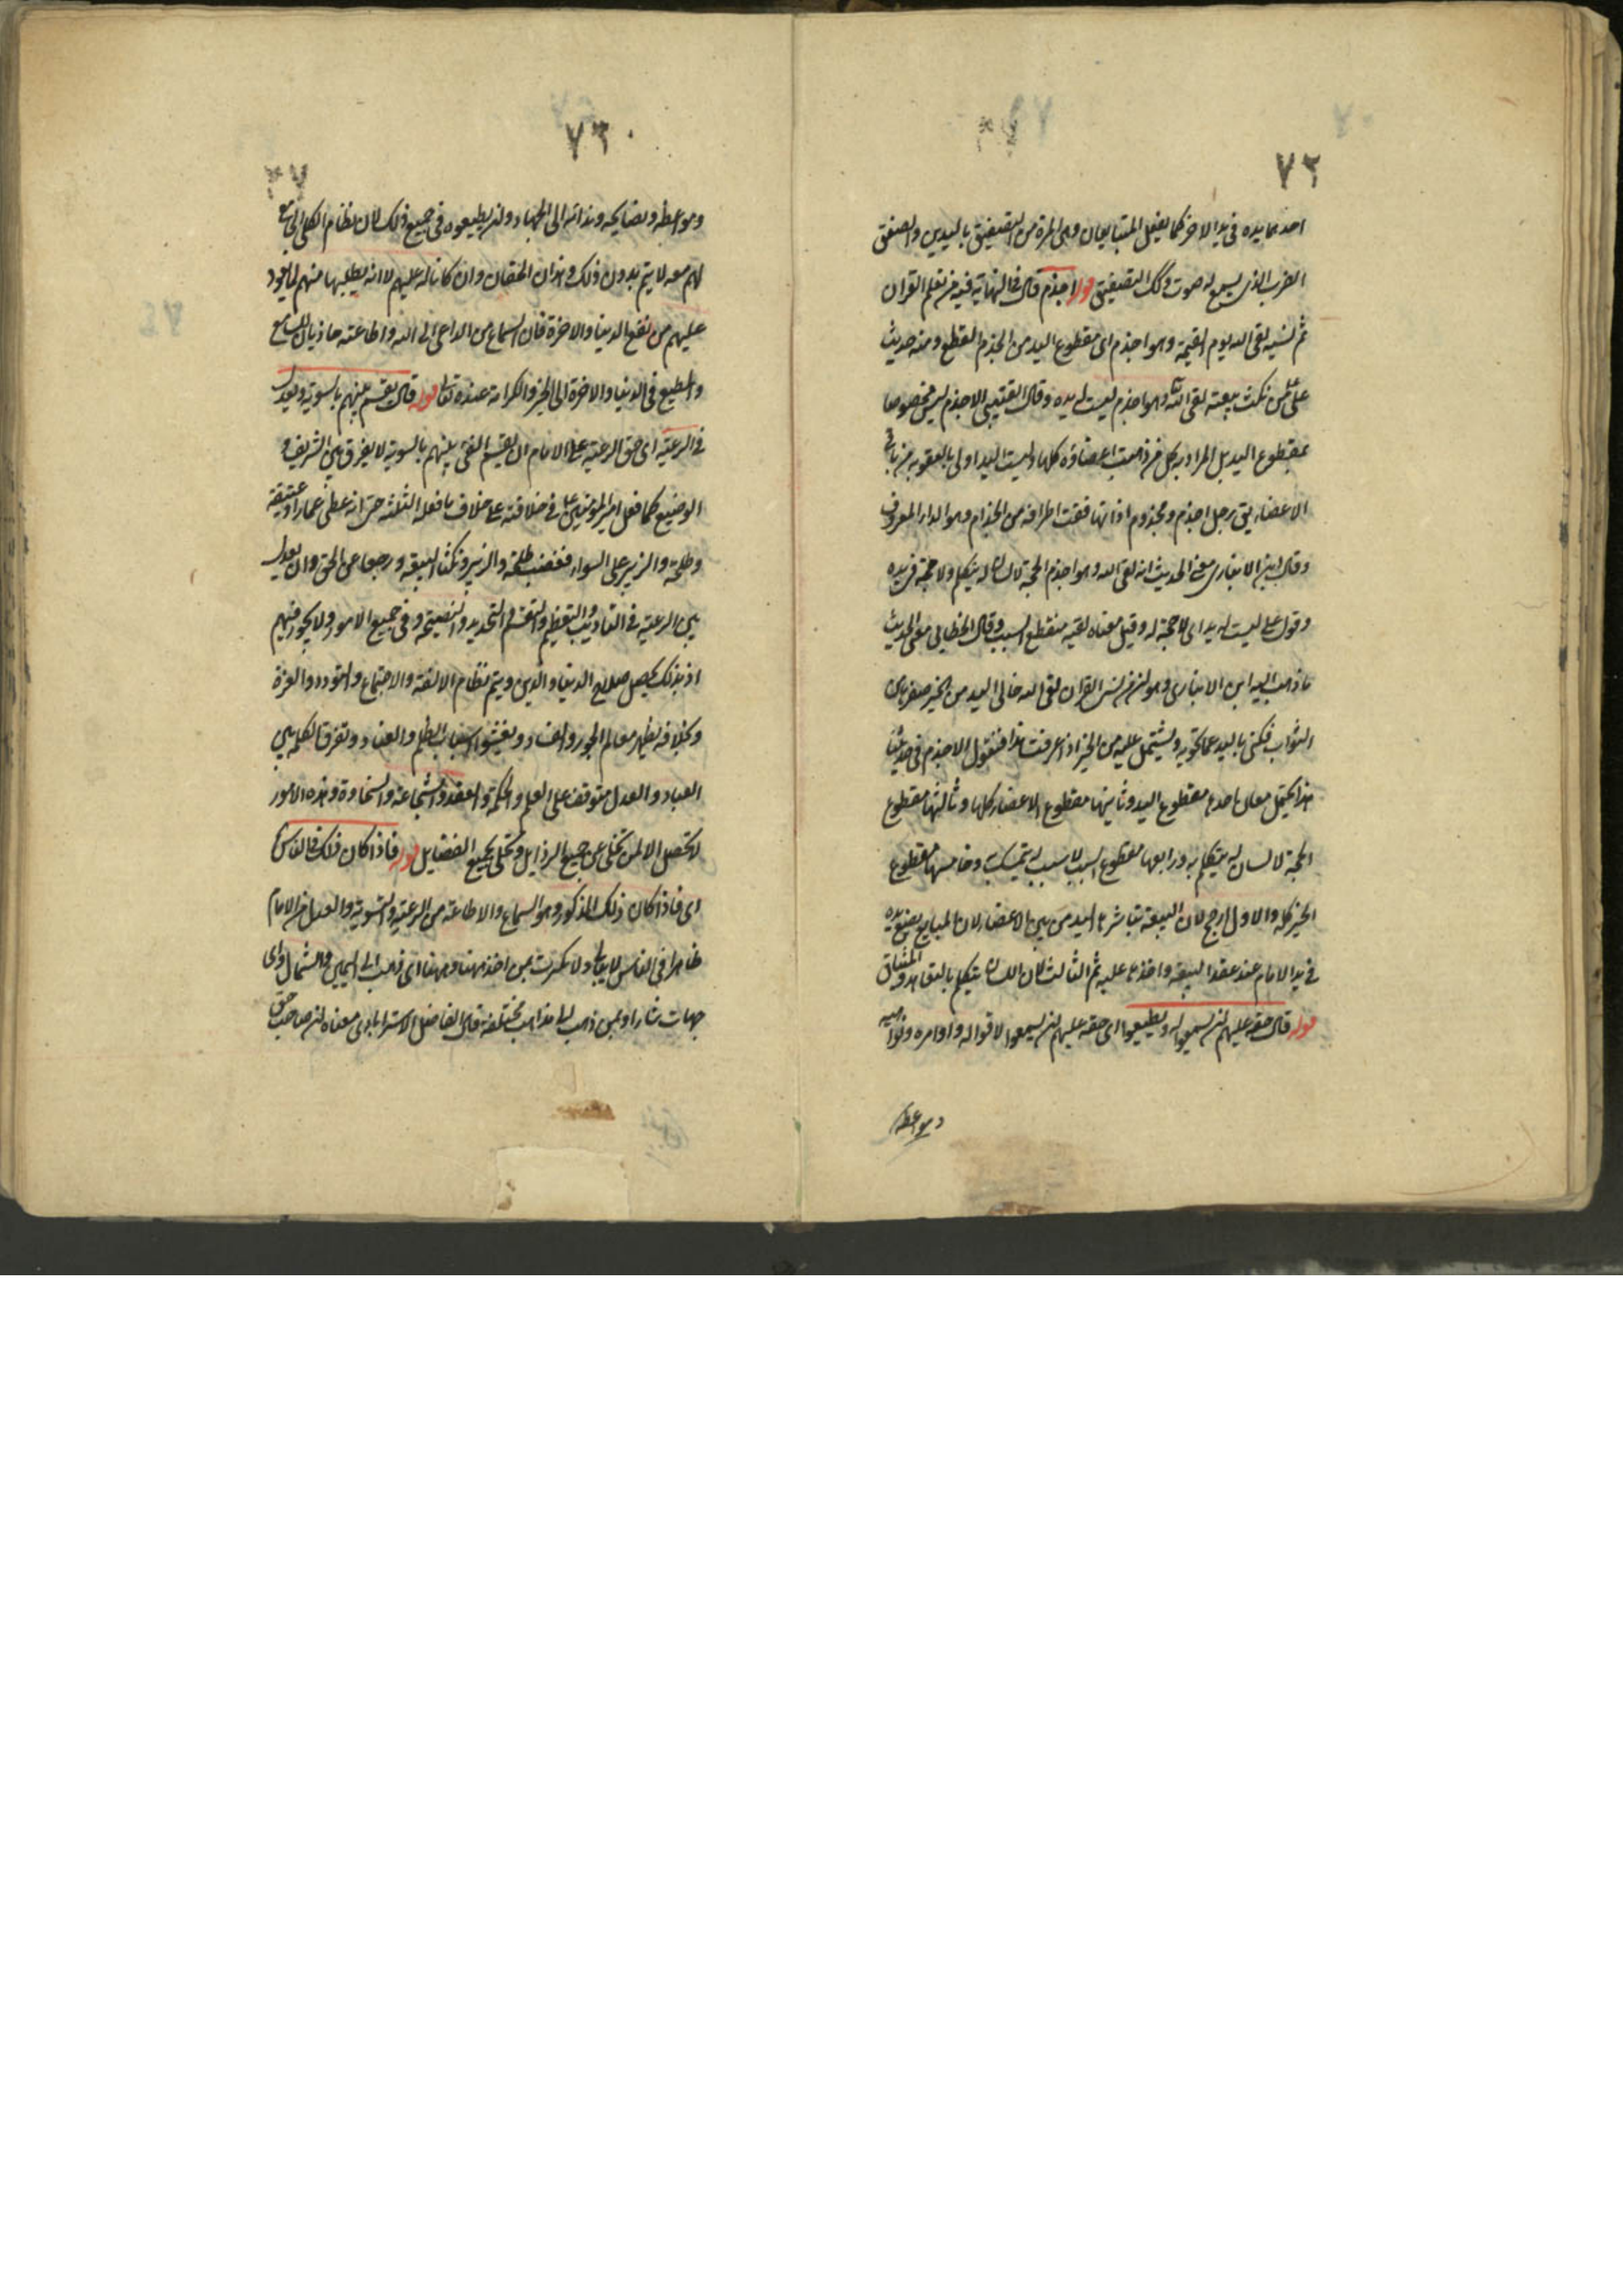 ٧٢
احدهما يده في يد الاخر كما يفعل المتبايعان وهى المرة من التصفيق باليدين والصفق
الضرب الذي يسمع له صوت وكك التصفيق قوله اجذم قال في النهاية فيه من تعلم القران
ثم نسيه لقى الله يوم القيمة وهو اجذم اى مقطوع اليد من الجذم القطع ومنه حديث
على من نكث بيعته لقى الله وهو اجذم ليست له يده وقال القتيبي الاجذم ليس مخصوصا
بمقطوع اليد بل المراد به كل من ذهبت اعضاؤه كلها وليست اليد اولى بالعقوبة من باقى
الاعضاء يق رجل اجذم ومجذوم اذا تهافتت اطرافه من الجذام وهو الداء المعروف
وقال ابن الانبارى معنى الحديث انه لقى الله وهو اجذم الحجة لا لسان له يتكلم ولا حجة في يده
وقول على ليست له يد اى لا حجة له وقيل معناه لقيه منقطع السبب وقال الخطابي معنى الحديث
ما ذهب اليه ابن الانبارى وهو ان من نسى القران لقى الله خالى اليد من الخير صفرها من
الثواب فكنى باليد عما تحويه وتشتمل عليه من الخير اذا عرفت هذا فنقول الاجذم في حديثنا
هذا يحتمل معان احدها مقطوع اليد وثانيها مقطوع الاعضاء كلها وثالثها مقطوع
الحجة لا لسان له يتكلم به ورابعها مقطوع السبب لا سبب له يتمسك به وخامسها مقطوع
الخير كله والاول ارجح لان البيعة تباشرها اليد من بين الاعضاء لان المبايع يضع يده
في يد الامام عند عقد البيعة واخذها عليه ثم الثالث لان اللسان يتكلم بالتعاهد والميثاق
قوله قال حقه عليهم ان يسمعوا له ويطيعوا اى حقه عليهم ان يسمعوا لاقواله واوامره ونواهيه
ومواعظه
٧٣
ومواعظه ونصايحه وندائه الى الجهاد وان يطيعوه في جميع ذلك لان نظام الكلى الذي
لهم معه لا يتم بدون ذلك وهذان الحقان وان كانا له عليهم الا انه يطلبها منهم لما يعود
عليهم من نفع الدنيا والاخرة فان السماع من الداعى الى الله واطاعته جاذبان للسامع
والمطيع في الدنيا والاخرة الى الخير والكرامة عنده تعالى قوله قال يقسم بينهم بالسوية ويعدل
في الرعية اى حق الرعية على الامام ان يقسم الفئ بينهم بالسوية لا يفرق بين الشريف و
الوضيع كما فعل امير المؤمنين في خلافته على خلاف ما فعله الثلثة حتى انه اعطى عمارا وعتيقه
وطلحة والزبير على السواء فغضب طلحة والزبير ونكثا البيعة ورجعا عن الحق وان يعدل
بين الرعية في التاديب والتعظيم والتقسيم والتحديد والنصيحة وفي جميع الامور ولا يجور فيهم
اذ بذلك يحصل صلاح الدنيا والدين ويتم نظام الالفة والاجتماع والتودد والعزة
وبخلافه يظهر معالم الجور والفساد ويفشوا اسباب الظلم والعناد وتفرق الكلمة بين
العباد والعدل متوقف على العلم والحكمة والعفة والشجاعة والسخاوة وهذه الامور
لا تحصل الا لمن تخلى عن جميع الرذايل وتحلى بجميع الفضايل قوله فاذا كان ذلك في الناس
اى فاذا كان ذلك المذكور وهو السماع والاطاعة من الرعية والتسوية والعدل من الامام
ظاهرا في الناس لا يبالى ولا يكترث بمن اخذ ههنا وههنا اى ذهب الى اليمين والشمال واى
جهات شاء او بمن ذهب الى مذاهب مختلفة قال الفاضل الاسترابادى معناه ان صاحب حق